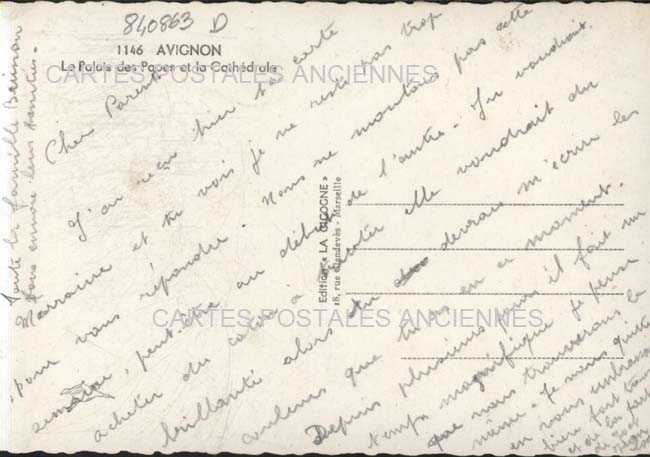 840863 D
1146 AVIGNON
Le Palais des Papes et la Cathédrale
CARTES POSTALES ANCIENNES
Chers Parents
J'ai reçu hier ta carte
Marraine et tu vois je ne reste pas trop
pour vous répondre. Nous ne montons pas cette
semaine, peut-être au début de l'autre. Tu voudrais
acheter du coton à elle voudrait du
brillanté alors tu devrais m'écrire les
couleurs que tu as en ce moment.
Depuis plusieurs jours il fait un
temps magnifique je pense
que nous trouverons le
même. Je vous quitte
en vous embrassant
bien fort
et de la part
de
Toute la famille
vous envoie leurs amitiés.
Edition « LA CIGOGNE »
18, rue Glandevès - Marseille
CARTES POSTALES ANCIENNES